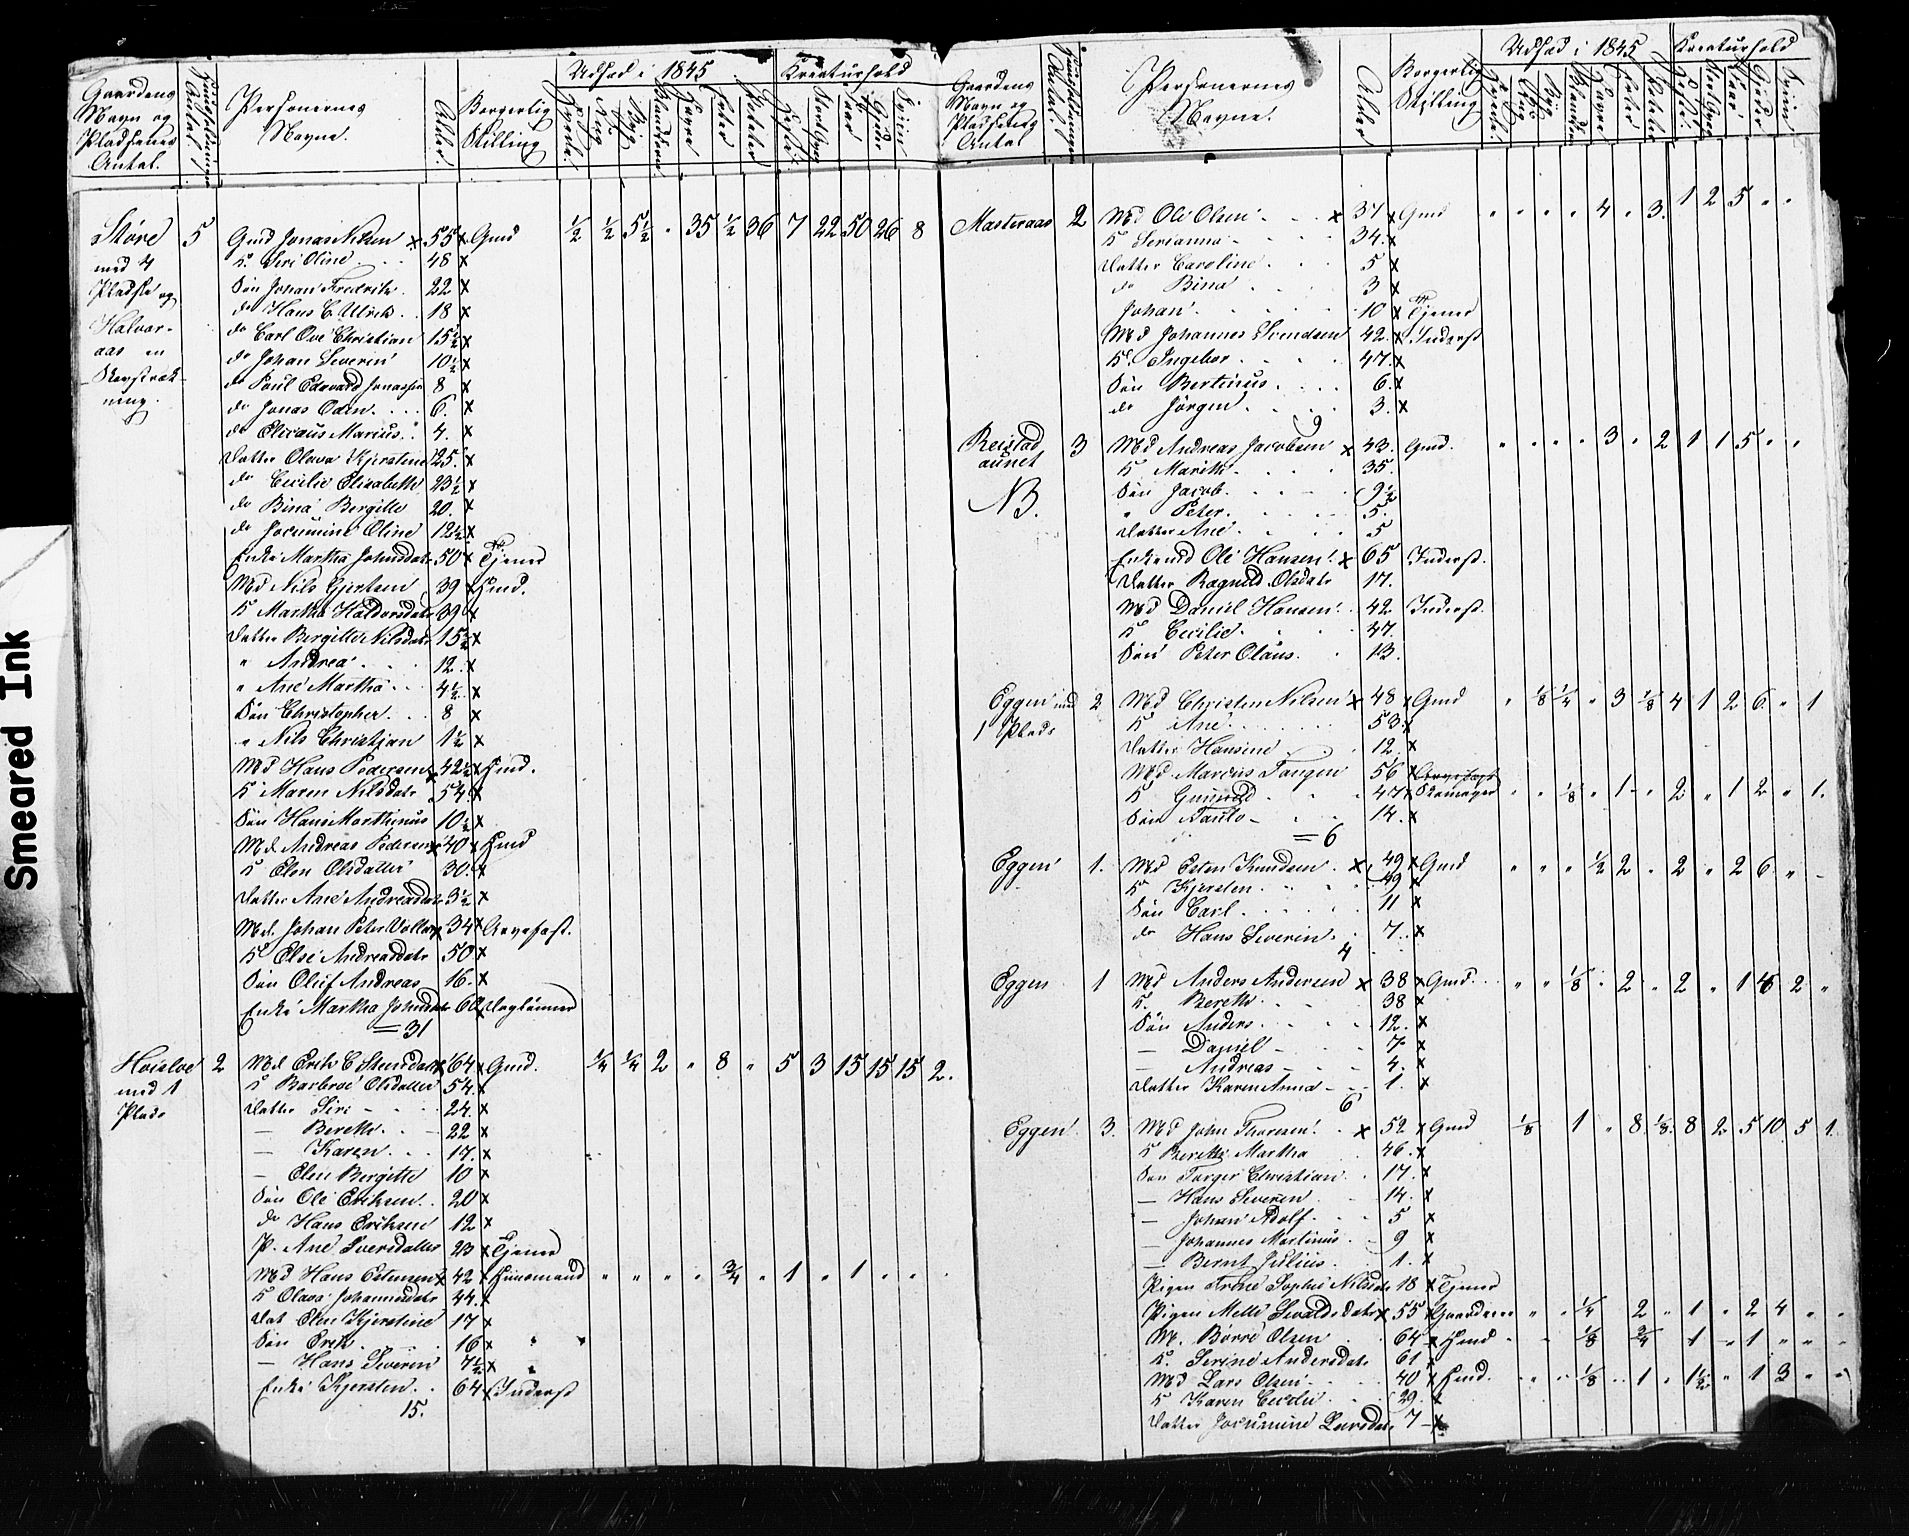 Smeared Ink
Gaardens Navn og Pladsenes Antal. Huusholdningers Antal Personernes Navne. Alder Borgerlig Stilling Udsæd i 1845 Hvede Rug Byg Blandkorn Havre Erter Poteter Kreaturhold Heste Stort Qvæg Faar Gjeder Sviin
Störe 5 Gmd Jonas Nilsen x 55 x Gmd ½ ½ 5½ " 35 ½ 36 7 22 50 26 8
med 4 K. Siri Oline 48 x
Pladse og Sön Johan Fredrik 22 x
Halvar- do Hans C. Ulrik 18 x
aas en do Carl Ove Christian 15½ x
Skovstræk- do Johan Severin 10½ x
ning. do Paul Edevard Jonassen 8 x
do Jonas Odin 6. x
do Elicæus Marius 4. x
Datter Olava Kjerstine 25. x
do Cecilie Elisabeth 23½ x
do Bina Bergitte 20. x
do Jocumine Oline 12½ x
Enke Martha Johnsdatr 50 x Tjener
Md Nils Gjertsen 39 x Huusmd.
K Martha Haldorsdatr 39 x
Datter Bergitte Nilsdatr 15½ x
" Andrea 12. x
" Ane Martha 4½ x
Sön Christopher 8 x
" Nils Christian 1½ x
Md Hans Pedersen x 42½ x Huusmd.
K Maren Nilsdatr 54 x
Sön Hans Marthinus 10½ x
Md. Andreas Pedersen x 40 x Huusmd
K Elen Olsdatter 30. x
Datter Ane Andreasdatr 3½ x
Md. Johan Peter Vollan x 34 x Arvefæst.
K Else Andreasdatr 50 x
Sön Oluf Andreas 16. x
Enke Martha Johnsdatr 60 x Daglönner
= 31
Hoisloe 2 Md Erik C Stensdal x 64 x Gmd. ¼ ¼ 2 " 8 " 5 3 15 15 15 2.
med 1 K Barbroe Olsdatter 54. x
Plads Datter Siri 24. x
— Berethe 22 x
— Karen 17. x
— Elen Bergitte 10 x
Sön Ole Eriksen 20 x
do Hans Eriksen 12 x
P. Ane Iversdatter 23 x Tjener
Md Hans Estensen x 42 x Huusmand " " " " ¾ " 1 " 1 " "
K Olava Johannesdatr 44. x
Dat Elen Kjerstine 17 x
Sön Erik 16 x
— Hans Severin 7½ x
Enke Kjersten 64 x Inderst
15.
Gaardens Navn og Pladsenes Antal Huusholdninger Antal Personernes Navne. Alder Borgerlig Stilling Udsæd i 1845 Hvede Rug Byg Blandkorn Havre Erter Poteter Kreaturhold Heste Stort Qvæg Faar Gjeder Sviin
Masteraas 2 Md Ole Olsen x 37 x Gmd " " " " 4 " 3. 1 2 5 " "
K Serianna 34. x
Datter Caroline 5 x
do Bina 3 x
Johan 10 x Tjener
Md Johannes Svendsen 42. x Inderst
K. Ingebor 47. x
Sön Bertinus 6. x
do Jörgen 3. x
9
Reistad 3 Md Andreas Jacobsen x 43. Gmd. " " " " 3 " 2 1 1 5 " "
aunet K Marith 35.
NB. Sön Jacob 9½
" Peter 5.
Datter Ane 5
Enkemd Ole Hansen x 65 Inderst.
Datter Ragnild Olsdatr 17.
Md Daniel Hansen 42 Inderst.
K Cecilie 47.
Sön Peter Olaus 13.
Eggen med 2 Md Christen Nilsen x 48 x Gmd " ⅛ ¼ " 3 ⅛ 4 1 2 6 " 1
1 Plads K Ane 53 x
Datter Hansine 12. x
Md Marcus Tangen 56 x
K Gunnild 47 x Skomager " " ⅛ " 1 " 2 " 1 2 " 1.
Sön Paulo 14. x
= 6
Eggen 1. Md Esten Knudsen x 49 x Gmd " " " ½ 2 " 2 " 2 6 " "
K Kjersten 49 x
Sön Carl 11 x
do Hans Severin 7. x
4
Eggen 1 Md Anders Andersen x 38 x Gmd. " " ⅛ " 2 " 2 " 1 6 2 "
K. Bereth 38 x
Sön Anders 12. x
— Daniel 7 x
— Andreas 4. x
Datter Karen Anna 1. x
6
Eggen 3. Md John Thoresen x 52 x Gmd ⅛ 1 " 8. ⅛. 8 2 5 10 5 1.
K Berethe Martha 46. x
Sön Torger Christian 17. x
— Hans Severen 14. x
— Johan Adolf 5 x
— Johannes Martinus 9 x
— Bernt Julius 1. x
Pigen Trine Sophie Nilsdatr 18 x Tjener
Pigen Mette Sivaldsdatr x 55 x " " ¼ 2 " 1 " 2 4 " "
M. Börre Olsen 64 x Huusmd " " ⅛ ¾ 1 " 1 " " "
K. Serine Andersdatr 61 x
Md Lars Olsen 40 x Huusmd. " " ⅛ " 1 " 1½ " 1 3 " "
K Karen Cecilie 29. x
Datter Jocumine Larsdatr 7 x